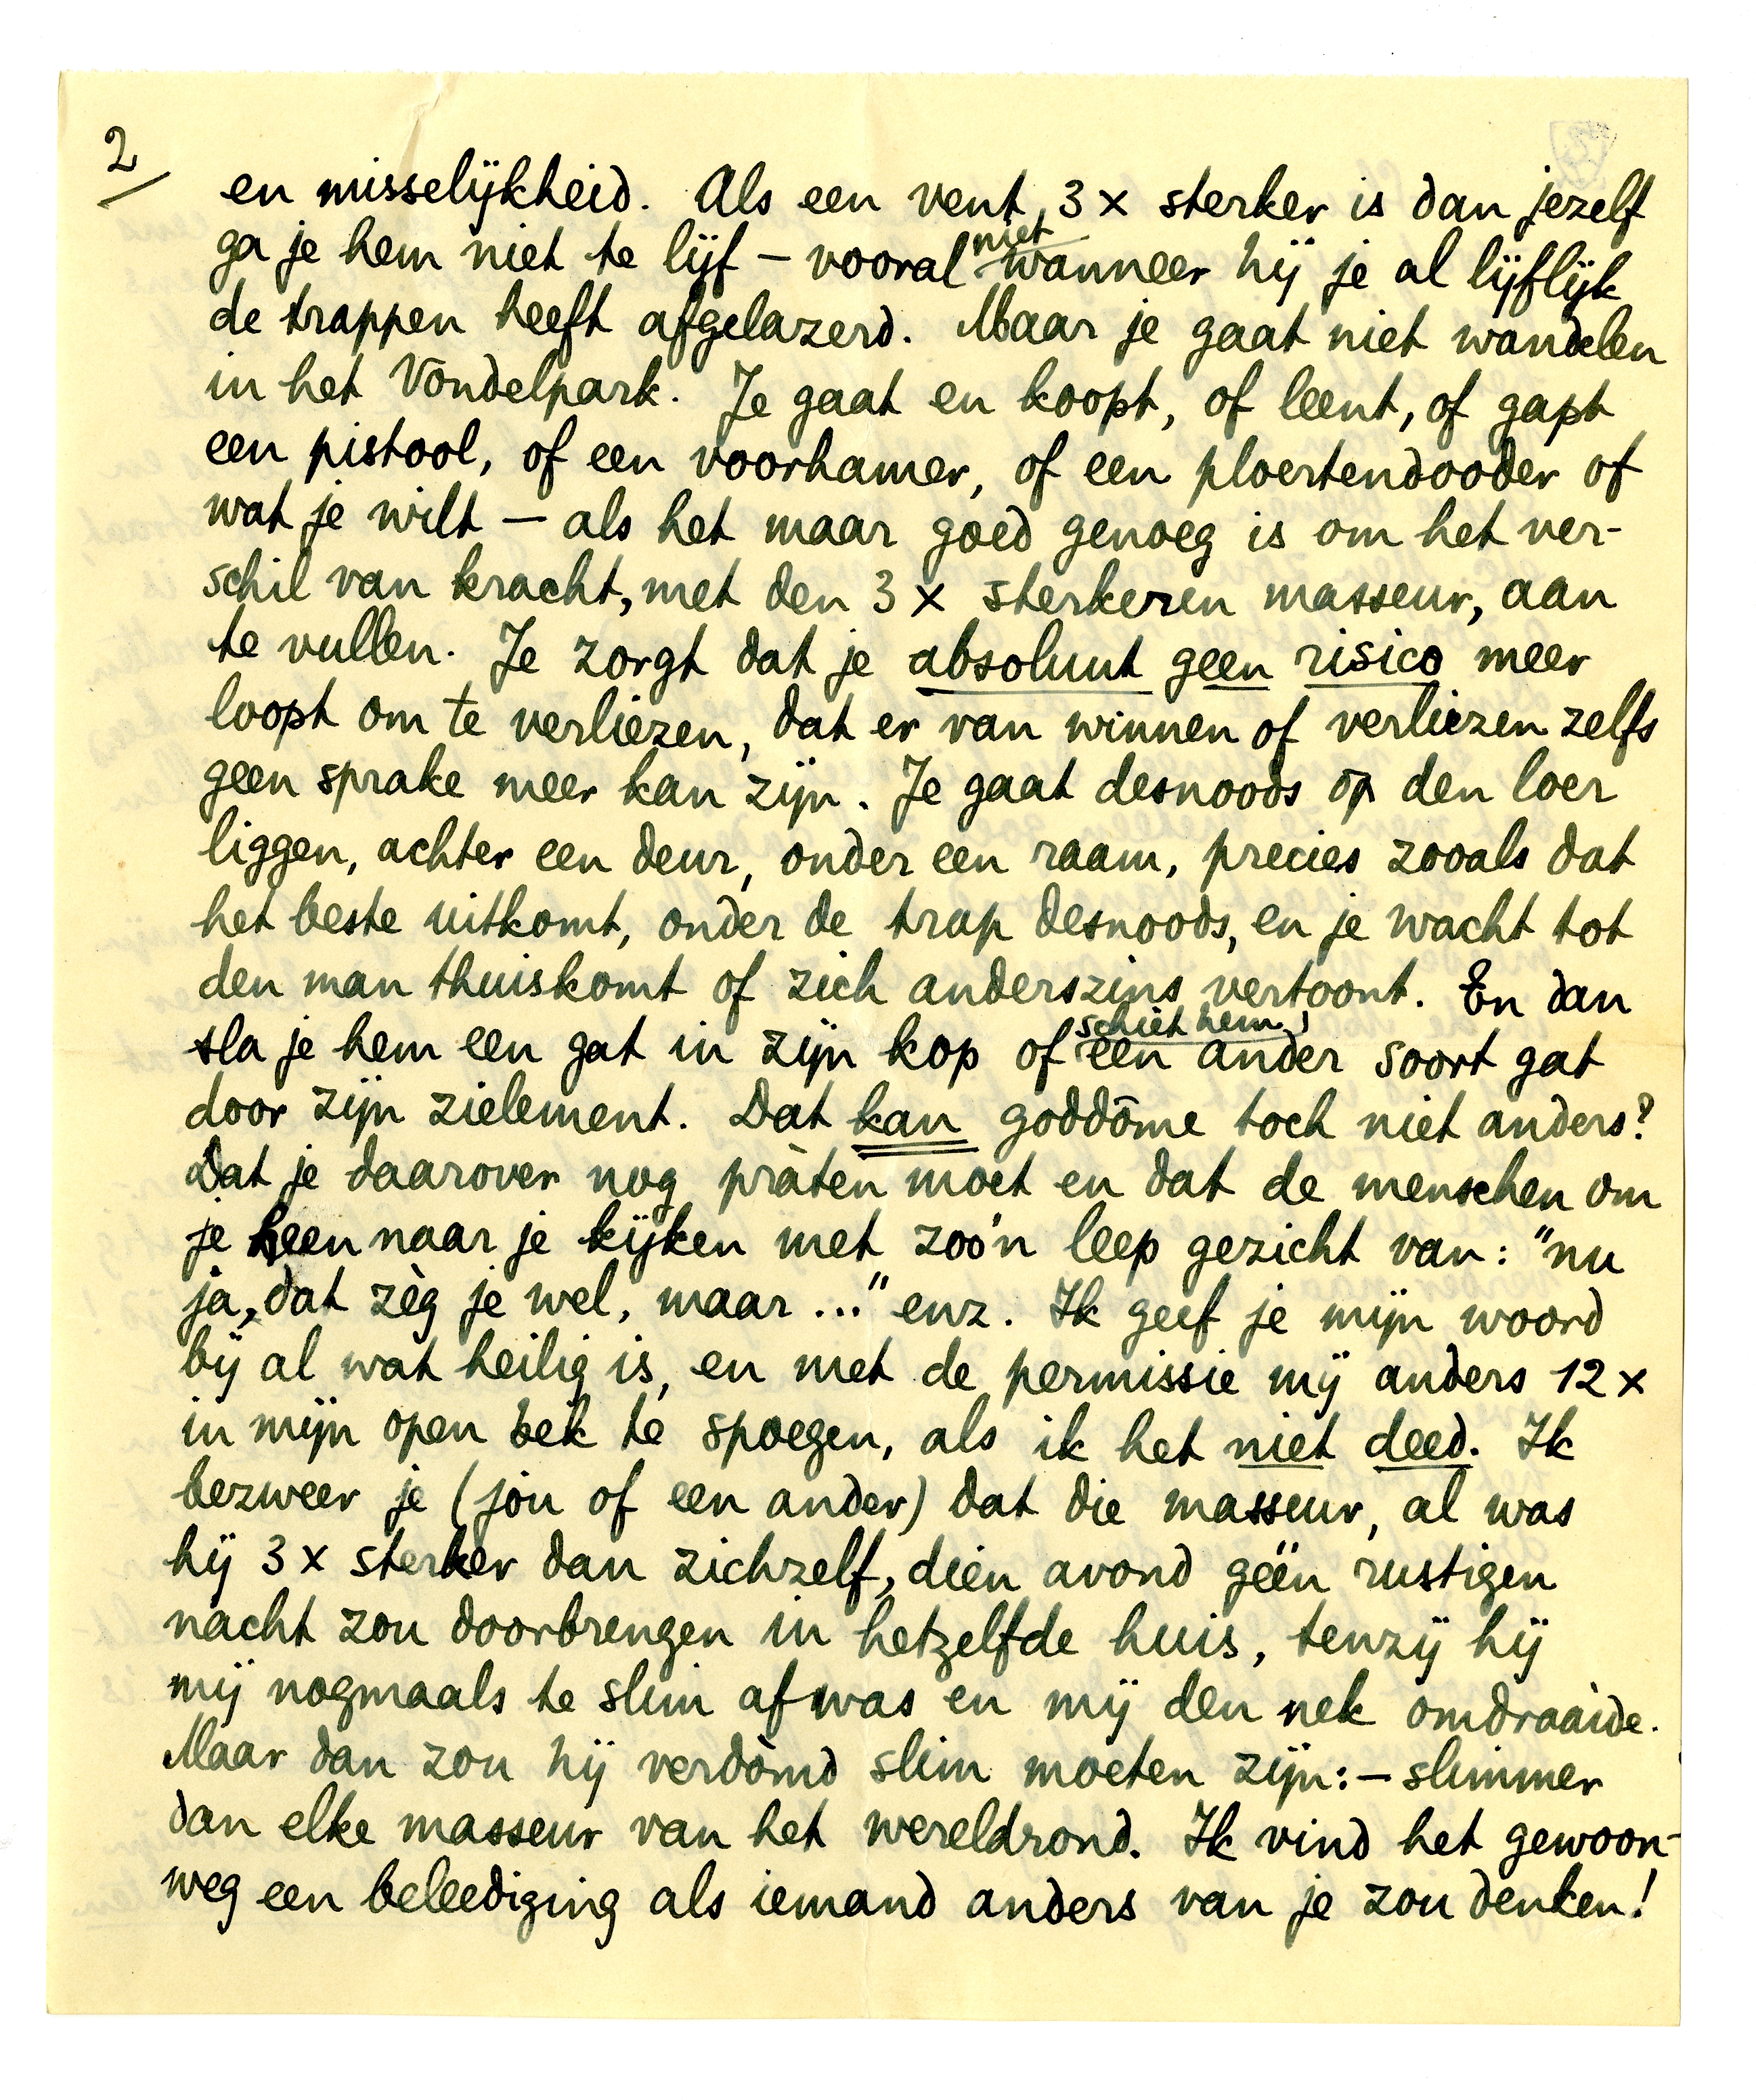 2
en misselijkheid. Als een vent, 3 x sterker is dan jezelf
ga je hem niet te lijf – vooral niet wanneer hij je al lijflijk
de trappen heeft afgelazerd. Maar je gaat niet wandelen
in het Vondelpark. Je gaat en koopt, of leent, of gapt
een pistool, of een voorhamer, of een ploertendooder of
wat je wilt – als het maar goed genoeg is om het ver-
schil van kracht, met den 3 x sterkeren masseur, aan
te vullen. Je zorgt dat je absoluut geen risico meer
loopt om te verliezen, dat er van winnen of verliezen zelfs
geen sprake meer kan zijn. Je gaat desnoods op den loer
liggen, achter een deur, onder een raam, precies zooals dat
het beste uitkomt, onder de trap desnoods, en je wacht tot
den man thuiskomt of zich anderszins vertoont. En dan
sla je hem een gat in zijn kop of schiet hem een ander soort gat
door zijn zielement. Dat kan goddôme toch niet anders?
Dat je daarover nog pràten moet en dat de menschen om
je heen naar je kijken met zoo'n leep gezicht van: "nu
ja, dat zèg je wel, maar ..." enz. Ik geef je mijn woord
bij al wat heilig is, en met de permissie mij anders 12 x
in mijn open bek te spoegen, als ik het niet deed. Ik
bezweer je (jou of een ander) dat die masseur, al was
hij 3 x sterker dan zichzelf, dien avond géén rustigen
nacht zou doorbrengen in hetzelfde huis, tenzij hij
mij nogmaals te slim af was en mij den nek omdraaide.
Maar dan zou hij verdòmd slim moeten zijn: – slimmer
dan elke masseur van het wereldrond. Ik vind het gewoon-
weg een beleediging als iemand anders van je zou denken!